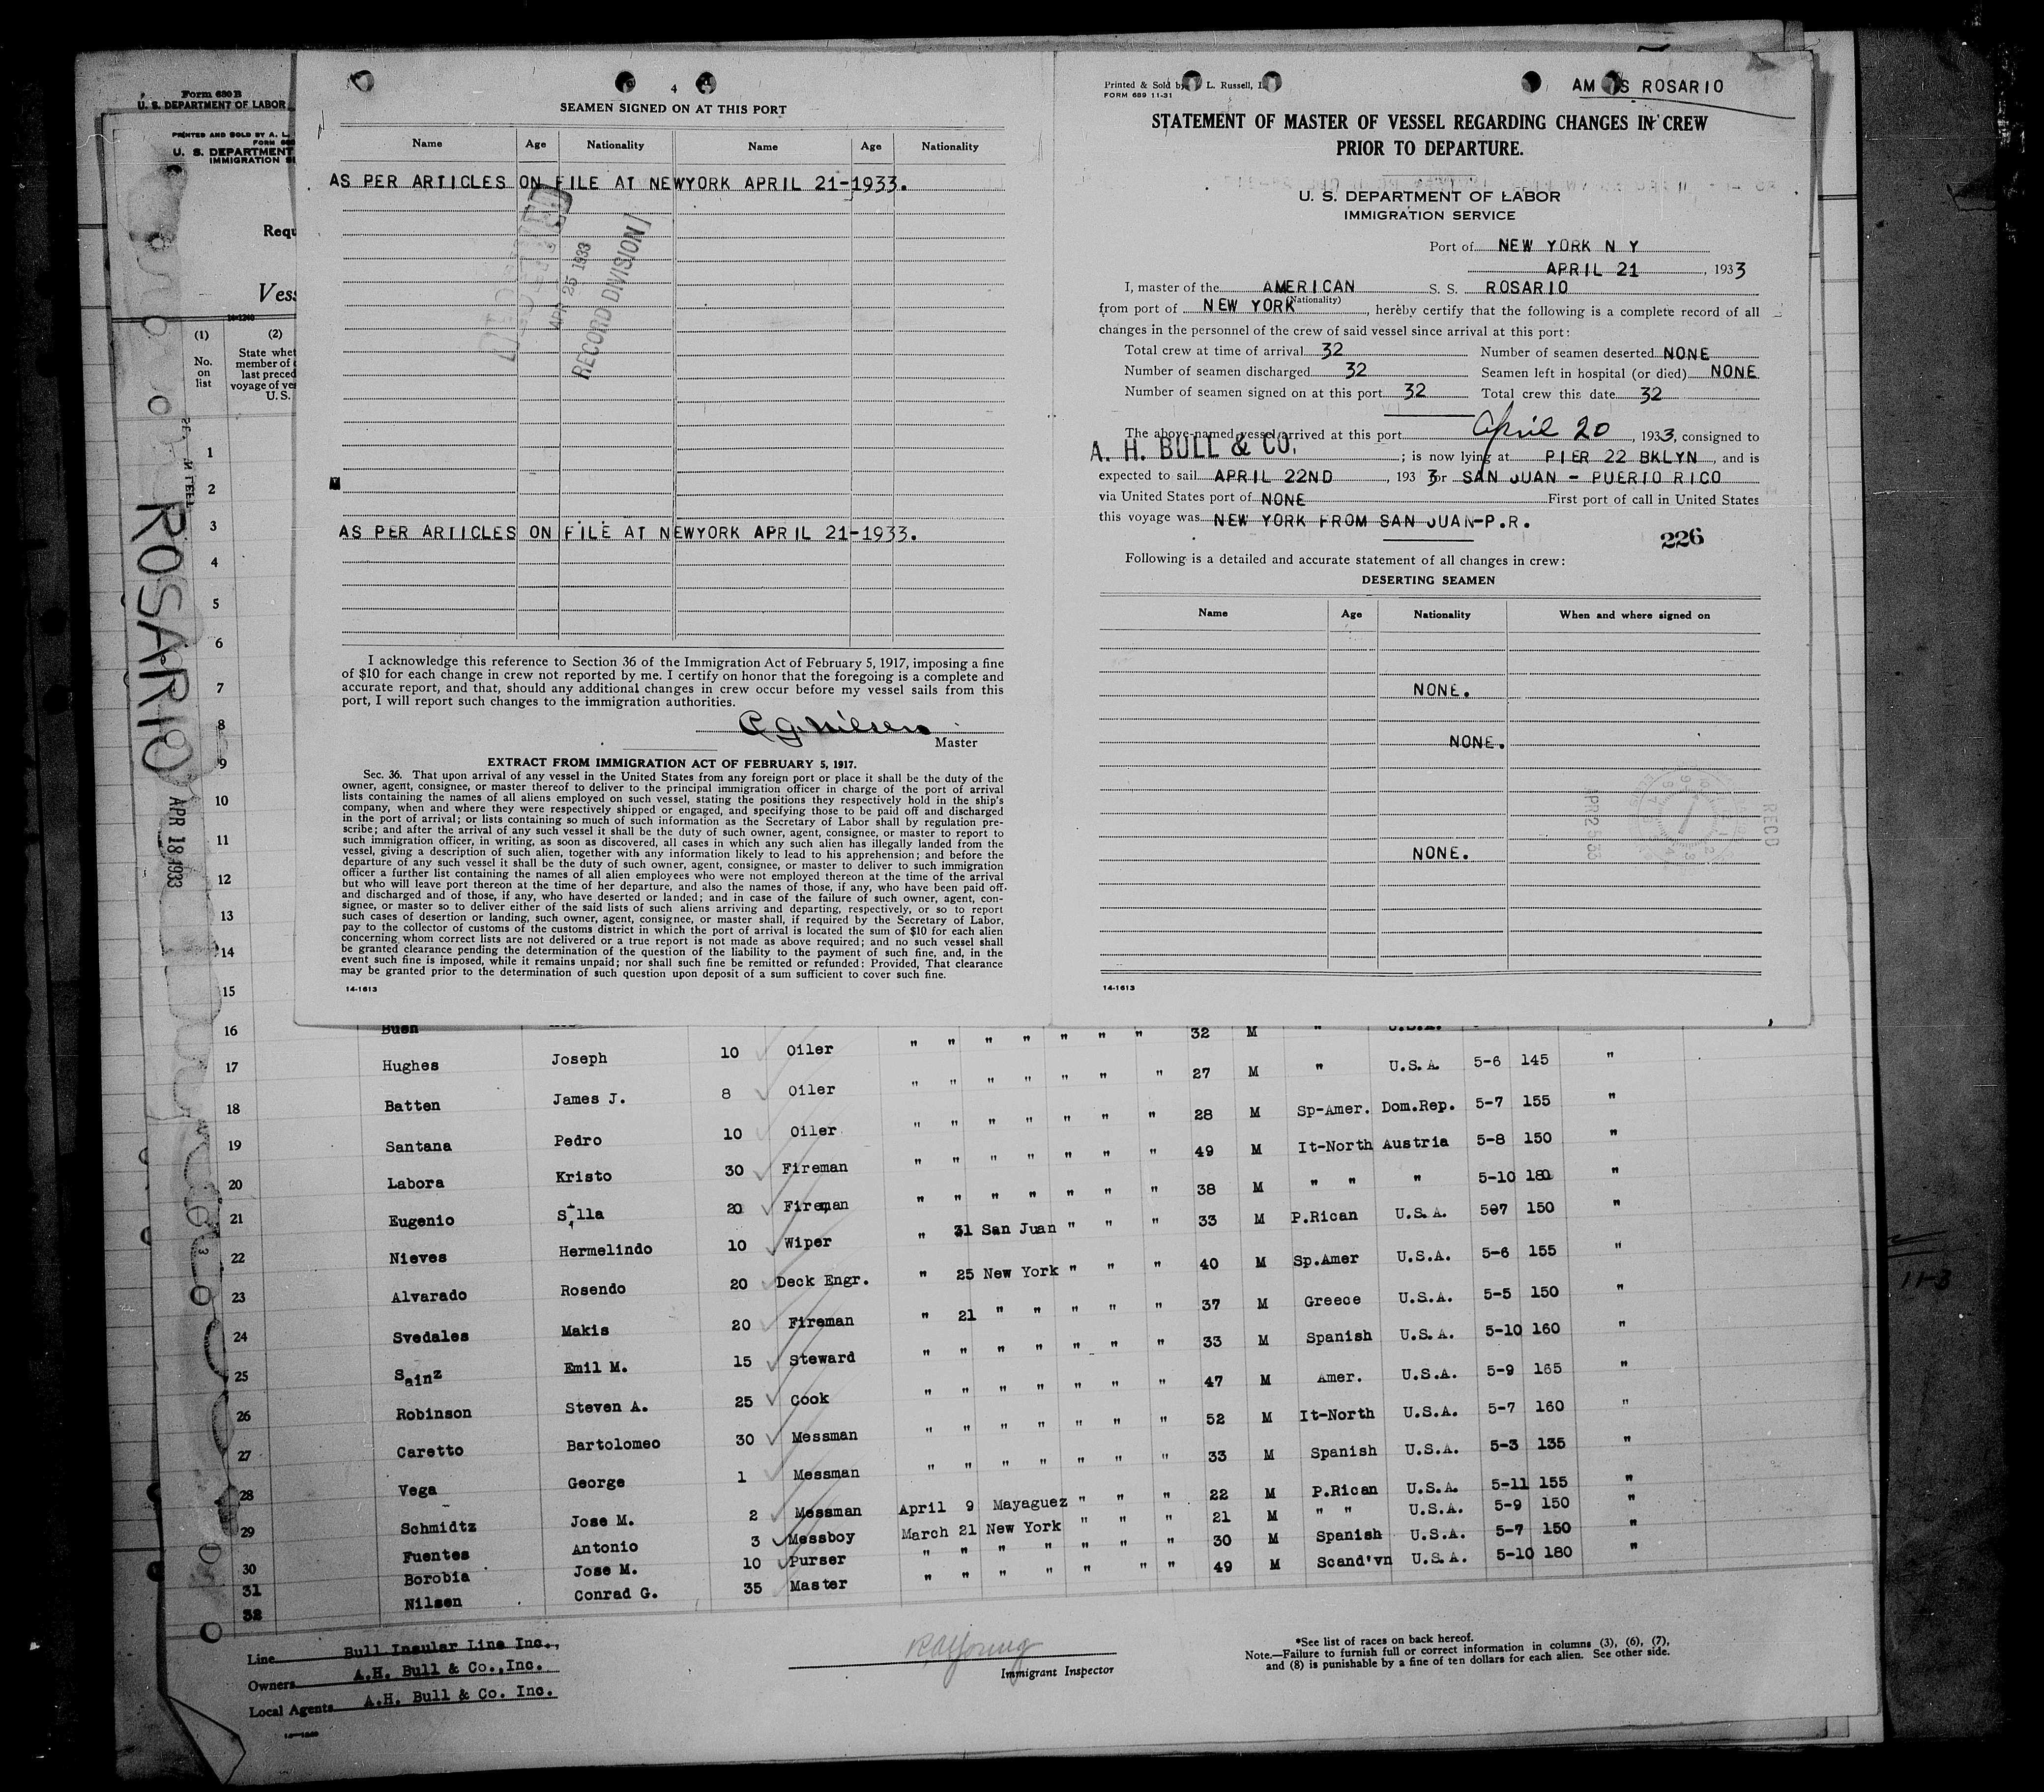 Form 680 B
U. S. DEPARTMENT OF LABOR
PRINTED AND SOLD BY A. L.
FORM 680
U. S. DEPARTMENT
IMMIGRATION S
Requ
Vess
(1) (2)
No. on list
State whet
member of
last preced
voyage of ves
U. S.
ROSARIO
APR 18 1933
4
SEAMEN SIGNED ON AT THIS PORT
Name Age Nationality Name Age Nationality
AS PER ARTICLES ON FILE AT NEWYORK APRIL 21-1933.
APR 25 1933
RECORD DIVISION
AS PER ARTICLES ON FILE AT NEWYORK APRIL 21-1933.
I acknowledge this reference to Section 36 of the Immigration Act of February 5, 1917, imposing a fine
of $10 for each change in crew not reported by me. I certify on honor that the foregoing is a complete and
accurate report, and that, should any additional changes in crew occur before my vessel sails from this
port, I will report such changes to the immigration authorities.
C. G. Nilsen
Master
EXTRACT FROM IMMIGRATION ACT OF FEBRUARY 5, 1917.
Sec. 36. That upon arrival of any vessel in the United States from any foreign port or place it shall be the duty of the
owner, agent, consignee, or master thereof to deliver to the principal immigration officer in charge of the port of arrival
lists containing the names of all aliens employed on such vessel, stating the positions they respectively hold in the ship's
company, when and where they were respectively shipped or engaged, and specifying those to be paid off and discharged
in the port of arrival; or lists containing so much of such information as the Secretary of Labor shall by regulation pre-
scribe; and after the arrival of any such vessel it shall be the duty of such owner, agent, consignee, or master to report to
such immigration officer, in writing, as soon as discovered, all cases in which any such alien has illegally landed from the
vessel, giving a description of such alien, together with any information likely to lead to his apprehension; and before the
departure of any such vessel it shall be the duty of such owner, agent, consignee, or master to deliver to such immigration
officer a further list containing the names of all alien employees who were not employed thereon at the time of the arrival
but who will leave port thereon at the time of her departure, and also the names of those, if any, who have been paid off
and discharged and of those, if any, who have deserted or landed; and in case of the failure of such owner, agent, con-
signee, or master so to deliver either of the said lists of such aliens arriving and departing, respectively, or so to report
such cases of desertion or landing, such owner, agent, consignee, or master shall, if required by the Secretary of Labor,
pay to the collector of customs of the customs district in which the port of arrival is located the sum of $10 for each alien
concerning whom correct lists are not delivered or a true report is not made as above required; and no such vessel shall
be granted clearance pending the determination of the question of the liability to the payment of such fine, and, in the
event such fine is imposed, while it remains unpaid; nor shall such fine be remitted or refunded: Provided, That clearance
may be granted prior to the determination of such question upon deposit of a sum sufficient to cover such fine.
14-1613
Printed & Sold by L. Russell, I
FORM 689 11-31
AM SS ROSARIO
STATEMENT OF MASTER OF VESSEL REGARDING CHANGES IN CREW
PRIOR TO DEPARTURE.
U. S. DEPARTMENT OF LABOR
IMMIGRATION SERVICE
Port of NEW YORK N Y
APRIL 21, 1933
I, master of the AMERICAN S. S. ROSARIO
(Nationality)
from port of NEW YORK, hereby certify that the following is a complete record of all
changes in the personnel of the crew of said vessel since arrival at this port:
Total crew at time of arrival 32 Number of seamen deserted NONE
Number of seamen discharged 32 Seamen left in hospital (or died) NONE
Number of seamen signed on at this port 32 Total crew this date 32
The above-named vessel arrived at this port April 20, 1933, consigned to
A. H. BULL & CO. ; is now lying at PIER 22 BKLYN, and is
expected to sail APRIL 22ND, 1933 for SAN JUAN - PUERTO RICO
via United States port of NONE First port of call in United States
this voyage was NEW YORK FROM SAN JUAN-P.R.
226
Following is a detailed and accurate statement of all changes in crew:
DESERTING SEAMEN
Name Age Nationality When and where signed on
NONE.
NONE.
NONE.
14-1613
1
2
3
4
5
6
7
8
9
10
11
12
13
14
15
16 Buen " " " " " " " 32 M " U.S.A.
17 Hughes Joseph 10 Oiler " " " " " " " 27 M " U.S.A. 5-6 145 "
18 Batten James J. 8 Oiler " " " " " " " 28 M Sp-Amer. Dom.Rep. 5-7 155 "
19 Santana Pedro 10 Oiler " " " " " " " 49 M It-North Austria 5-8 150 "
20 Labora Kristo 30 Fireman " " " " " " " 38 M " " " 5-10 180 "
21 Eugenio Silla 20 Fireman " 31 San Juan " " " 33 M P.Rican U.S.A. 507 150 "
22 Nieves Hermelindo 10 Wiper " 25 New York " " " 40 M Sp.Amer U.S.A. 5-6 155 "
23 Alvarado Rosendo 20 Deck Engr. " 21 " " " " " 37 M Greece U.S.A. 5-5 150 "
24 Svedales Makis 20 Fireman " " " " " " " 33 M Spanish U.S.A. 5-10 160 "
25 Sainz Emil M. 15 Steward " " " " " " " 47 M Amer. U.S.A. 5-9 165 "
26 Robinson Steven A. 25 Cook " " " " " " " 52 M It-North U.S.A. 5-7 160 "
27 Caretto Bartolomeo 30 Messman " " " " " " " 33 M Spanish U.S.A. 5-3 135 "
28 Vega George 1 Messman April 9 Mayaguez " " " 22 M P.Rican U.S.A. 5-11 155 "
29 Schmidtz Jose M. 2 Messman March 21 New York " " " 21 M " " U.S.A. 5-9 150 "
30 Fuentes Antonio 3 Messboy " " " " " " " 30 M Spanish U.S.A. 5-7 150 "
31 Borobia Jose M. 10 Purser " " " " " " " 49 M Scand'vn U.S.A. 5-10 180 "
32 Nilsen Conrad G. 35 Master
Line Bull Insular Line Inc.,
Owners A.H. Bull & Co.,Inc.
Local Agents A.H. Bull & Co. Inc.
Immigrant Inspector
*See list of races on back hereof.
Note.—Failure to furnish full or correct information in columns (3), (6), (7),
and (8) is punishable by a fine of ten dollars for each alien. See other side.
11-3